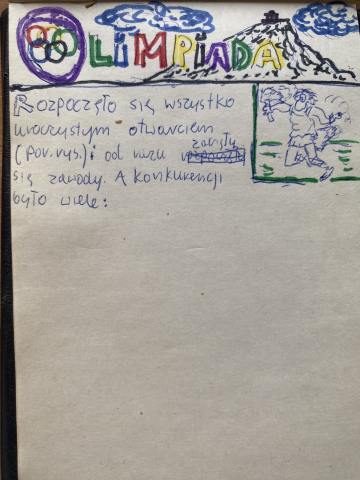 OLIMPIADA
Rozpoczęło się wszystko
uroczystym otwarciem
(pov. rys.) i od razu zaczęły
się zawody. A konkurencji
było wiele: